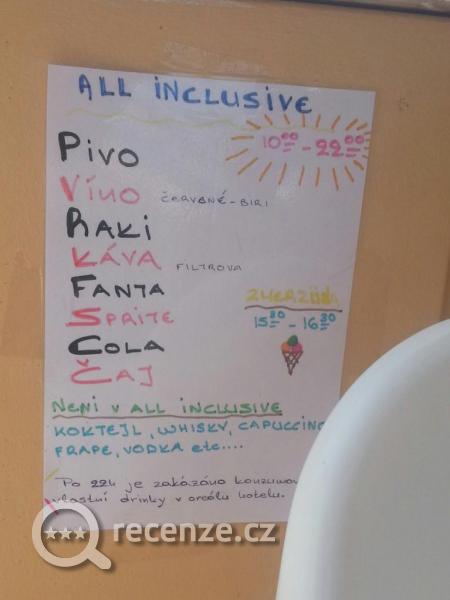 ALL INCLUSIVE
10 00 - 22 00
Pivo
Víno ČERVENÉ-BIRI
RAKI
KÁVA FILTROVA
FANTA
ZMERZlinA
SPRITE
15 30 - 16 30
COLA
ČAJ
NENI V ALL INCLUSIVE
KOKTEJL, WHISKY, CAPUCCINO
FRAPE, VODKA etc....
Po 22h je zakázáno konzumov
vlastní drinky v areálu hotelu.
recenze.cz